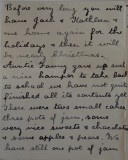 Before very long you will
have Jack & Kathleen &
me home again for the
holidays & then it will
be nearly Christmas.
Auntie Fanny gave up and
a nice hamper to take back
to school we have not quite
finished all its contents yet
There were two small cakes
three pots of jam, some
very nice sweets & chocolate
& some apples & pears. We
have still one pot of jam